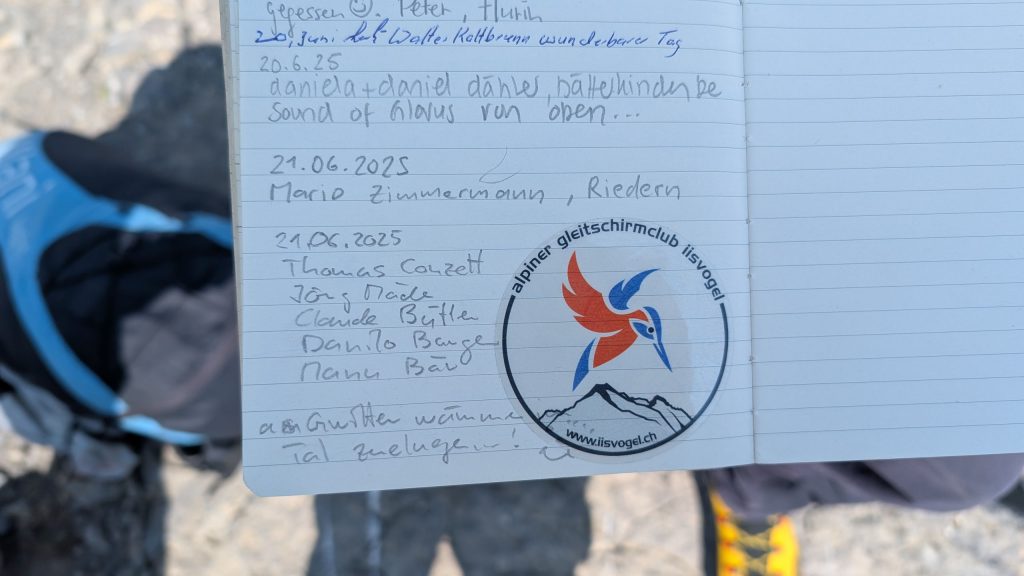 gegessen☺. Peter, Flurin
20. Juni Walter Kottbrunn wunderbarer Tag
20.6.25
daniela+daniel dähler, bätterkinden be
Sound of Glarus von oben...
21.06.2025
Mario Zimmermann, Riedern
21.06.2025
Thomas Conzett
Jörg Mäde
Claude Bütler
Danilo
Manu Bär
Tal
alpiner gleitschirmclub iisvogel
www.iisvogel.ch